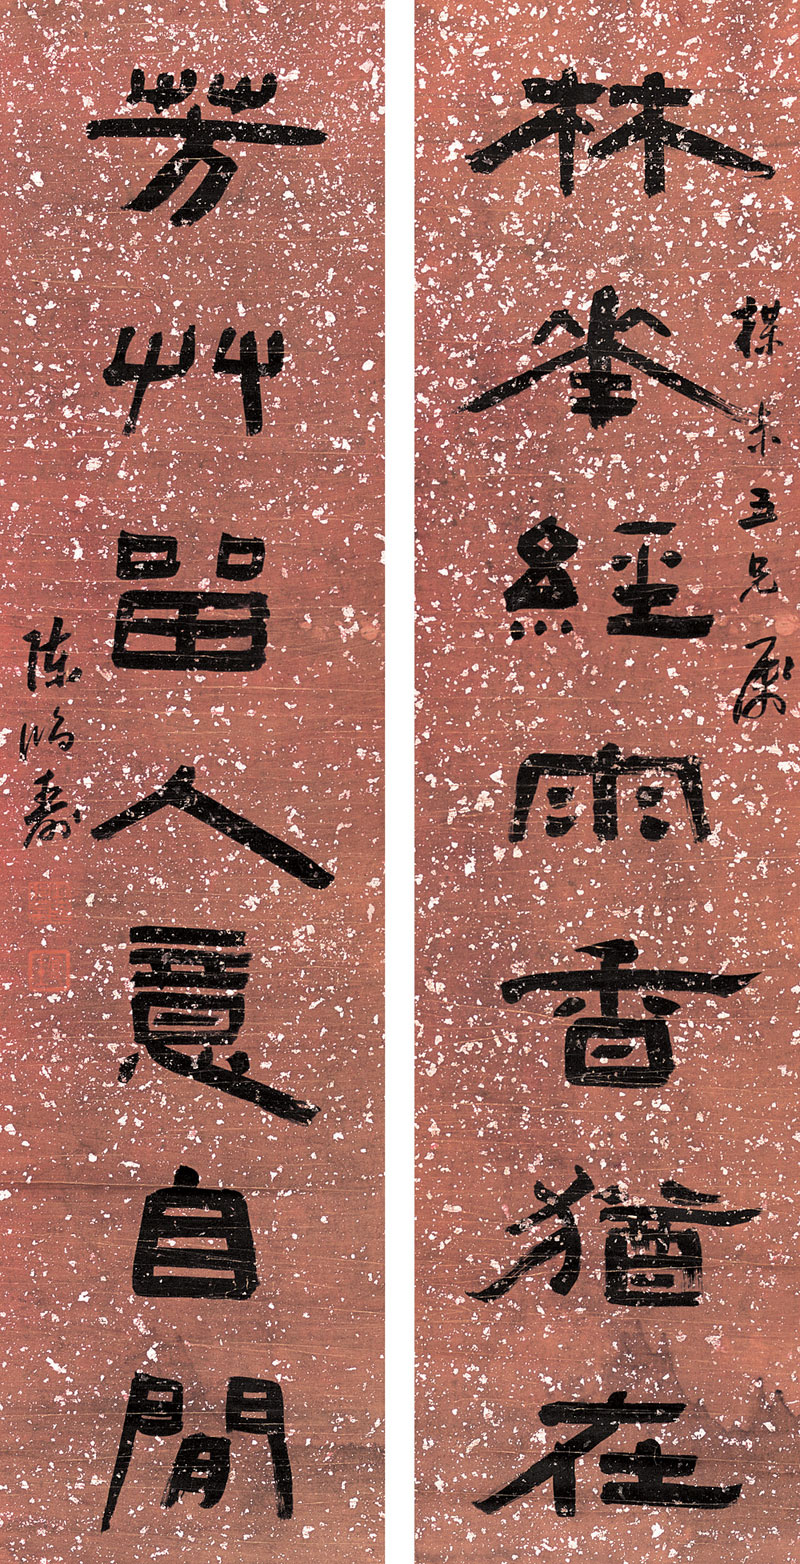 林華經雨香猶在
楳五兄屬
芳艸留人意自閒
陳鴻壽